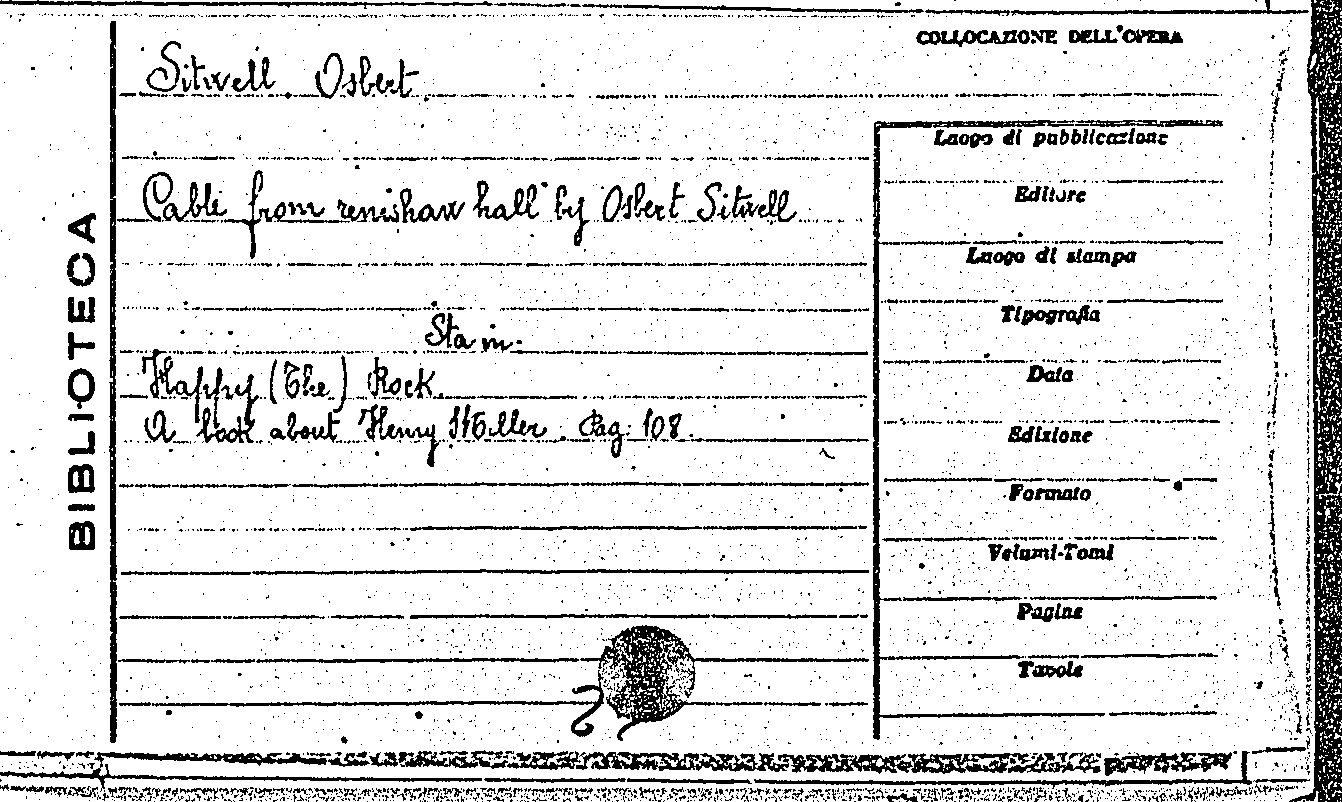 COLLOCAZIONE DELL'OPERA
Sitwell. Osbert.
Cable from renishaw hall by Osbert Sitwell
Sta in:
Happy (The) Rock.
A book about Henry Miller. Pag. 108.
BIBLIOTECA
Luogo di pubblicazione
Editore
Luogo di stampa
Tipografia
Data
Edizione
Formato
Volumi-Tomi
Pagine
Tavole